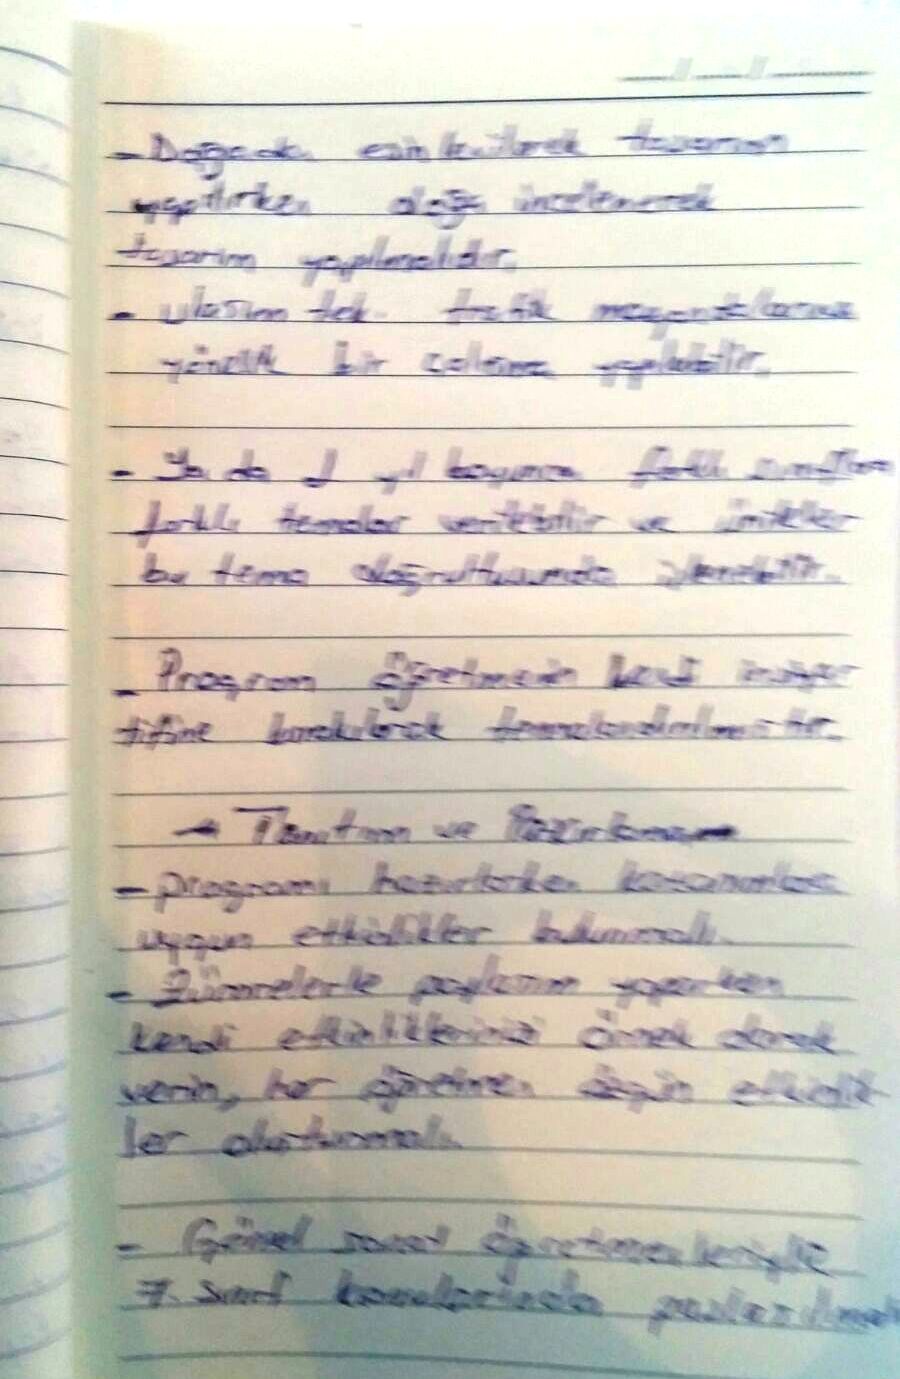 - Doğadan esinlenilerek tasarım
yapılırken doğa incelenerek
tasarım yapılmalıdır.
- Ulaşım tek. trafik
yönelik bir çalışma yapılabilir.
- Ya da 1 yıl boyunca farklı sınıflara
farklı temalar verilebilir ve üniteler
bu tema doğrultusunda işlenebilir.
- Program öğretmenin kendi
bırakılarak
Tanıtım ve
- programı hazırlarken kazanımlara
uygun etkinlikler bulunmalı.
- Zümrelerle paylaşım yaparken
kendi etkinliklerinizi örnek olarak
verin, her öğretmen özgün etkinlik-
ler oluşturmalı.
- Görsel sanat öğretmenleriyle
7. sınıf konularında